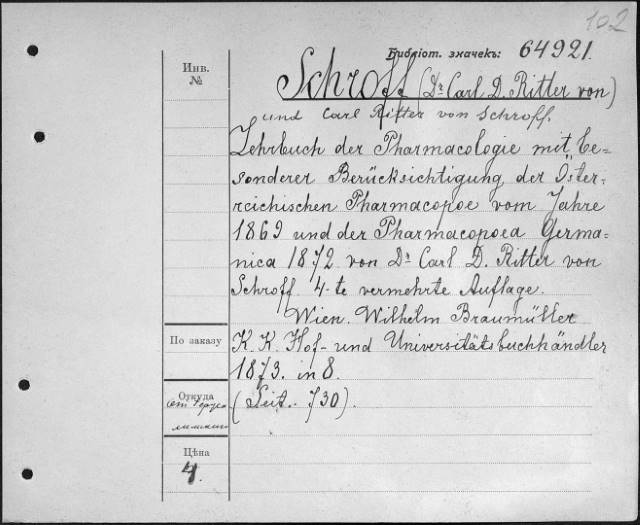 102
Библіот. значекъ: 64921.
Инв.
№
Schroff (Dr Carl D. Ritter von)
und Carl Ritter von Schroff.
Lehrbuch der Pharmacologie mit be-
sonderer Berücksichtigung der Öster-
reichischen Pharmacopoe vom Jahre
1869 und der Pharmacopoea Germa-
nica 1872 von Dr Carl D. Ritter von
Schroff 4-te vermehrte Auflage.
Wien. Wilhelm Braumüller
По заказу
K. K. Hof- und Universitätsbuchhändler
1873. in 8.
Откуда
(Seit. 730).
Цѣна
4.